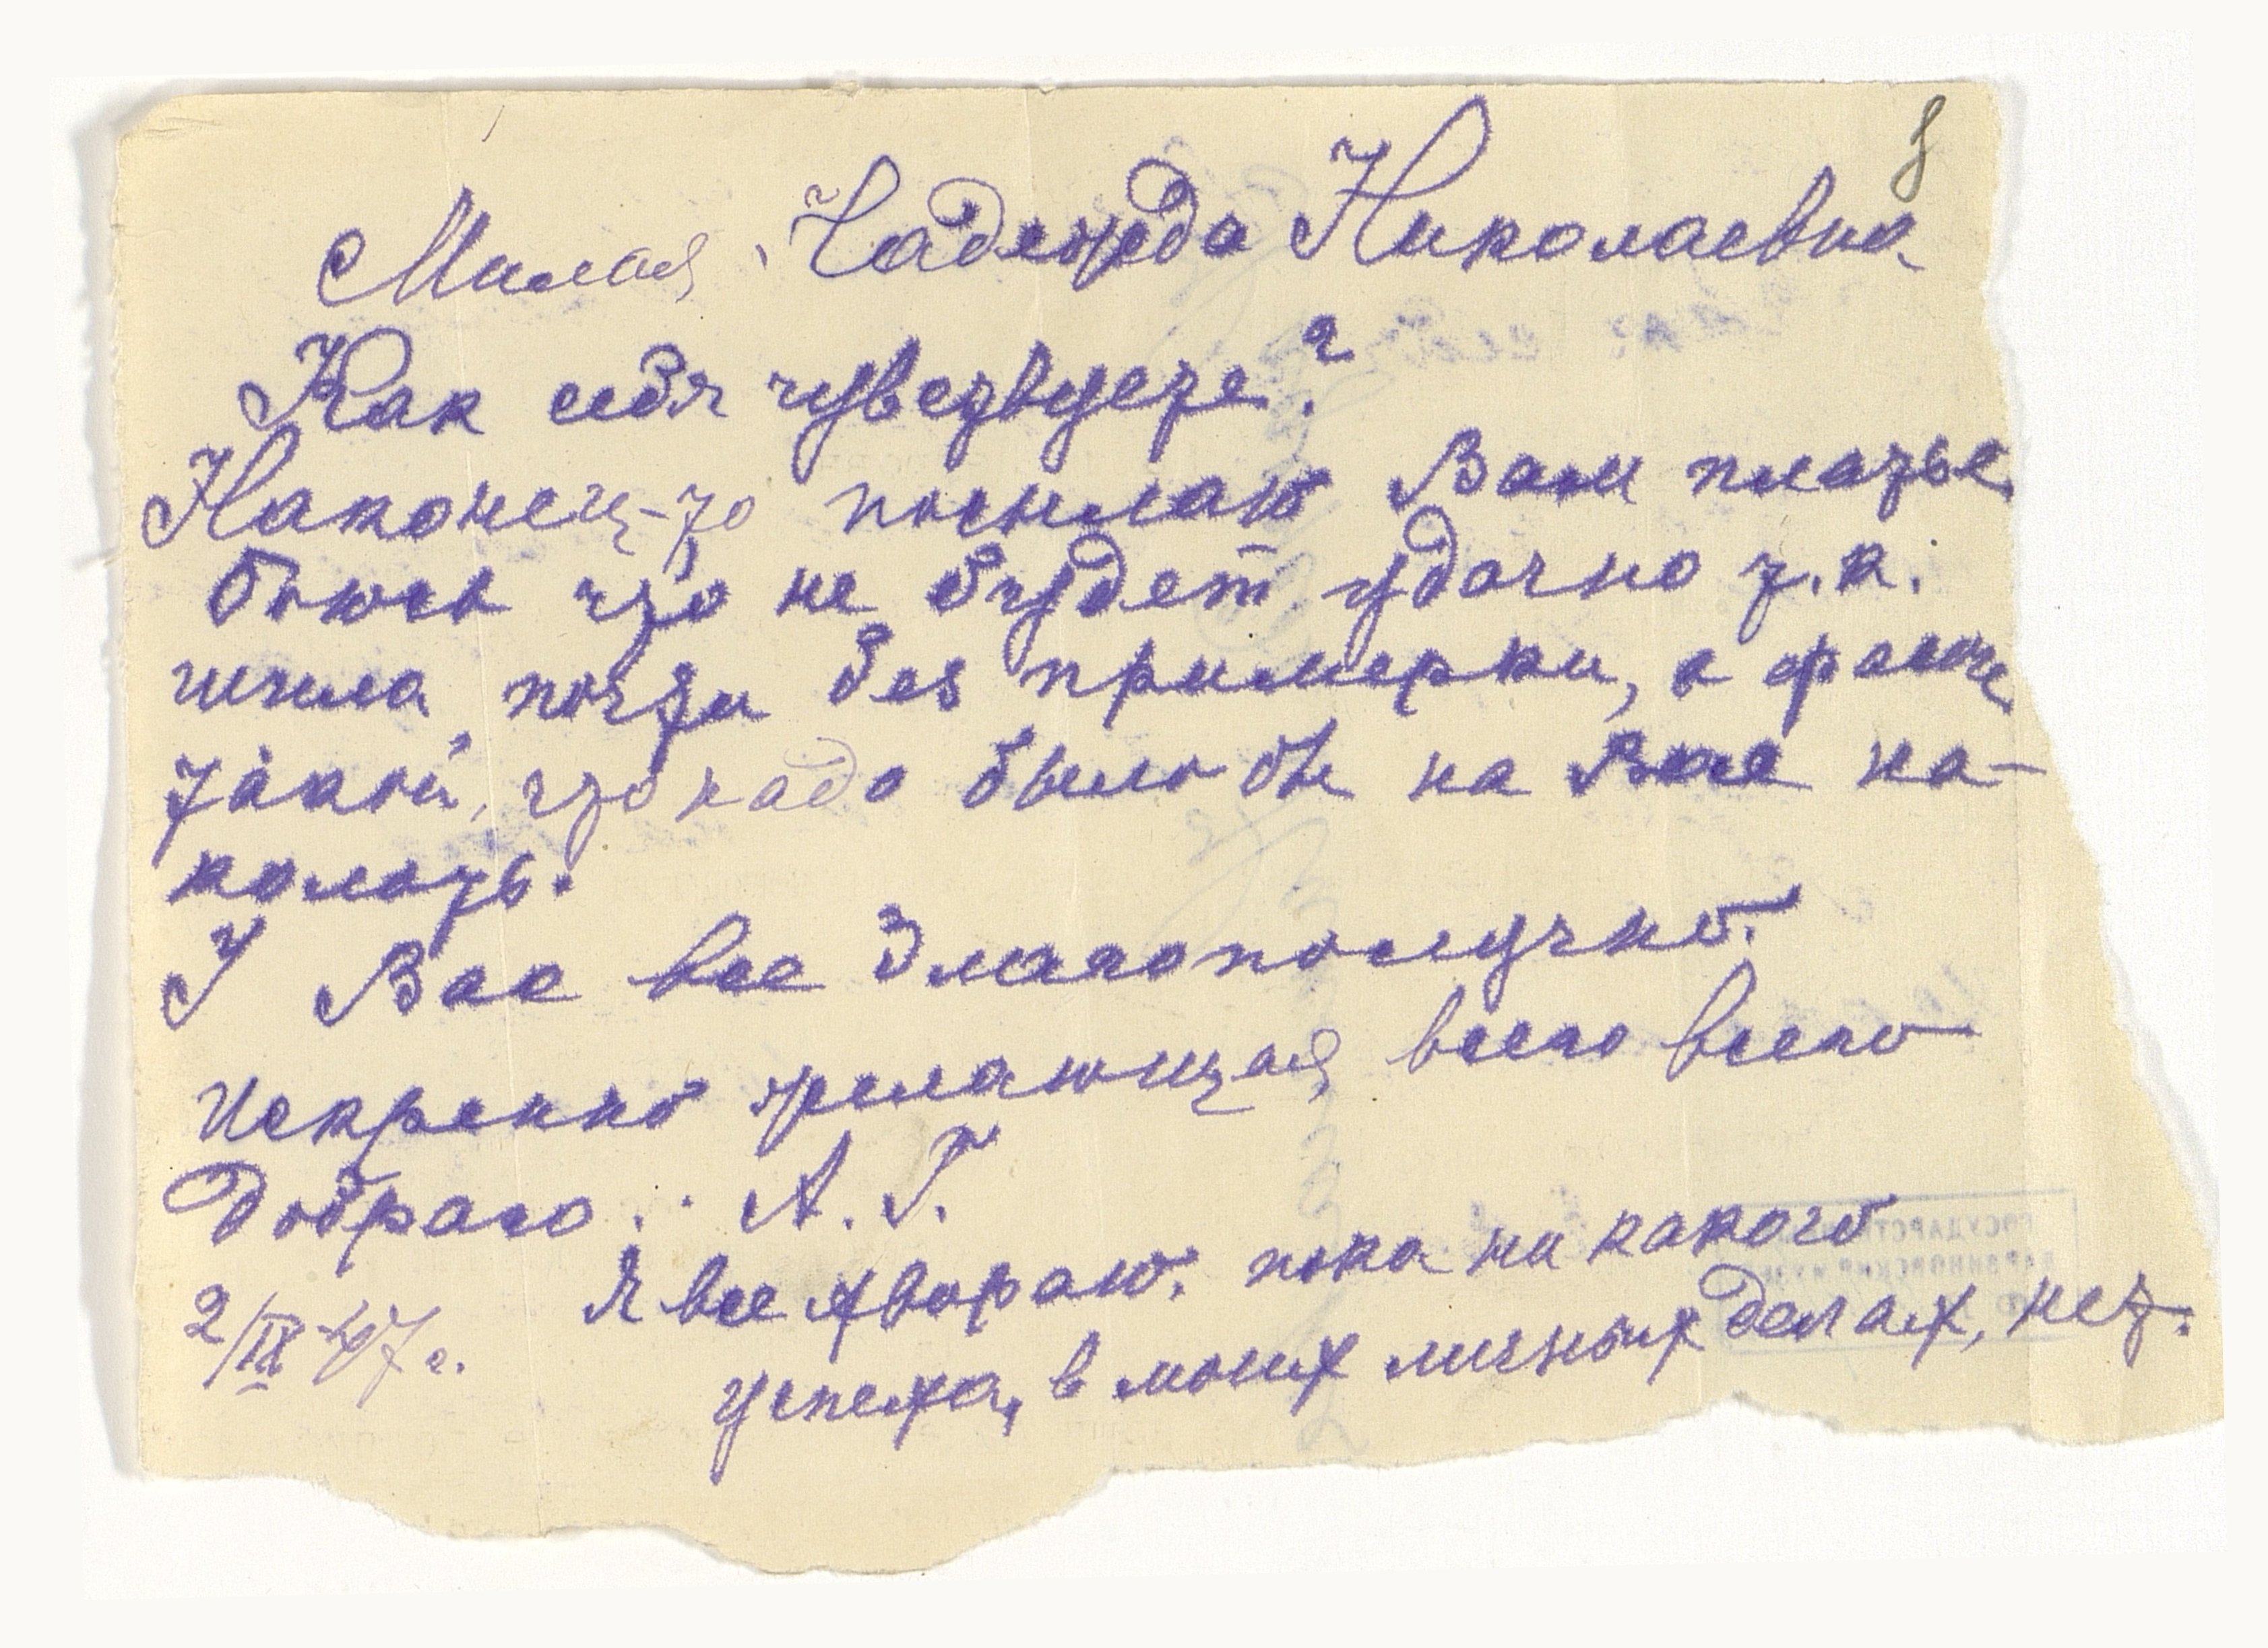 8
Милая, Надежда Николаевна
Как себя чувствуете?
Наконец-то посылаю Вам платье
боюсь что не будет удачно т.к.
шила почти без примерки, а фасон
такой, что надо было бы на Вас на-
колоть.
У Вас все благополучно.
Искренно желающая всего всего
доброго.. А.Г.
Я все хвораю. пока ни какого
2/IX-47г.
успеха, в моих личных делах, нет.